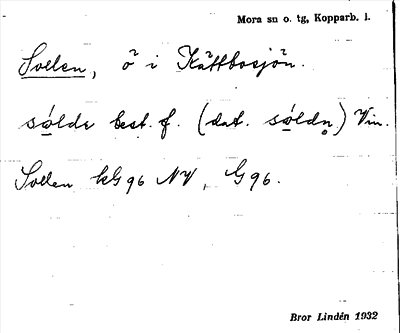 Mora sn o. tg, Kopparb. l.
Sollen, ö i Kättbosjön.
sǻ̱ldẹ best. f. (dat. sǻ̱ldn̥) Vin.
Sollen kG 96 NV, G 96.
Bror Lindén 1932